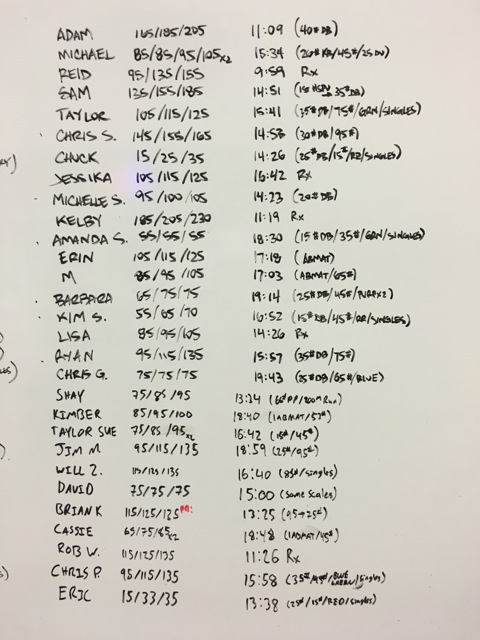 ADAM 165/185/205 11:09 (40# DB)
MICHAEL 85/85/95/105x2 15:34 (20# KB/45#/25 DU)
REID 95/135/155 9:59 Rx
SAM 135/155/185 14:51 (15 HSPU → 35# DB)
TAYLOR 105/115/125 15:41 (35# DB/75#/GRN/SINGLES)
CHRIS S. 145/155/165 14:58 (30# DB/95#)
CHUCK 15/25/35 14:26 (25# DB/15#/RR/SINGLES)
JESSIKA 105/115/125 16:42 Rx
MICHELLE S. 95/100/105 14:23 (20# DB)
KELBY 185/205/230 11:19 Rx
AMANDA S. 55/55/55 18:30 (15# DB/35#/GRN/SINGLES)
ERIN 105/115/125 17:18 (ABMAT)
M 85/95/105 17:03 (ABMAT/65#)
BARBARA 65/75/75 19:14 (25# DB/45#/PURPX2)
KIM S. 55/65/70 16:52 (15# DB/45#/RR/SINGLES)
LISA 85/95/105 14:26 Rx
RYAN 95/115/135 15:57 (35# DB/75#)
CHRIS G. 75/75/75 19:43 (35# DB/65#/BLUE)
SHAY 75/85/95 13:24 (65# PP/200m Run)
KIMBER 85/95/100 18:40 (1ABMAT/53#)
TAYLOR SUE 75/85/95x2 16:42 (15#/45#)
JIM M 95/115/135 18:59 (25#/95#)
WILL Z. 115/125/135 16:40 (85#/singles)
DAVID 75/75/75 15:00 (some scales)
BRIAN K 115/125/125 PR! 13:25 (95→75#)
CASSIE 65/75/85x2 18:48 (1ABMAT/45#)
ROB W. 115/125/135 11:26 Rx
CHRIS P. 95/115/135 15:58 (35#/45#/BLUE GREEN/Singles)
ERIC 15/33/35 13:38 (25#/15#/RED/singles)